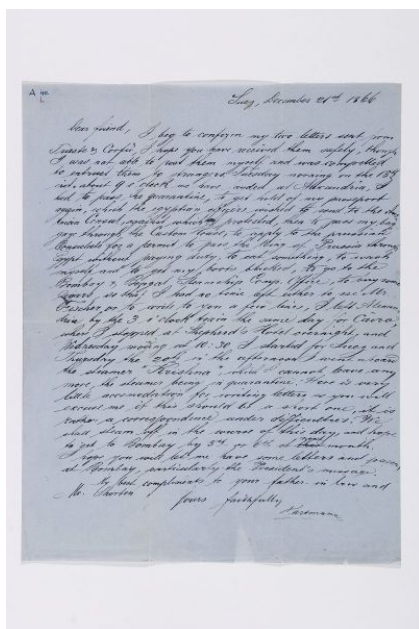 Suez, December 21st 1866
Dear friend, I beg to confirm my two letters sent from
Trieste & Corfu, I hope you have received them safely, though
I was not able to post them myself and was compelled
to entrust them to strangers. Tuesday morning on the 18th
inst. about 9 o'clock we have arrived at Alexandria, I
had to pass the quarantine, to get hold of my passport
again, which the reception officers wished to send to the
Consul, against which I protested, then to pass my lug
gage through the Custom House, to apply to the
Consulate for a permit to pass the King of Prussia
Egypt without paying duty, to eat something, to wash
myself and to get my boots blacked, to go to the
Bombay & Bengal Steamship Comp. Office, to
so that I had no time left either to see
Fischer or to write to you a few lines, I left Alexan
dria by the 3 o'clock train the same day for Cairo,
where I stopped at Shepherd's Hotel overnight, and
Wednesday morning at 10.30 I started for Suez and
Thursday the 20th in the afternoon I went aboard
the steamer "Krishna" which I cannot leave any
more, the steamer being in quarantine. Here is very
little accommodation for writing letters so you will
excuse me if this should be a short one, it is
rather a correspondence under difficulties. We
shall steam off in the course of this day and hope
to get to Bombay by 5th or 6th month
I hope you will let me have some letters and
at Bombay, particularly the President's message.
My best compliments to your father in law and
Mr.
Yours faithfully